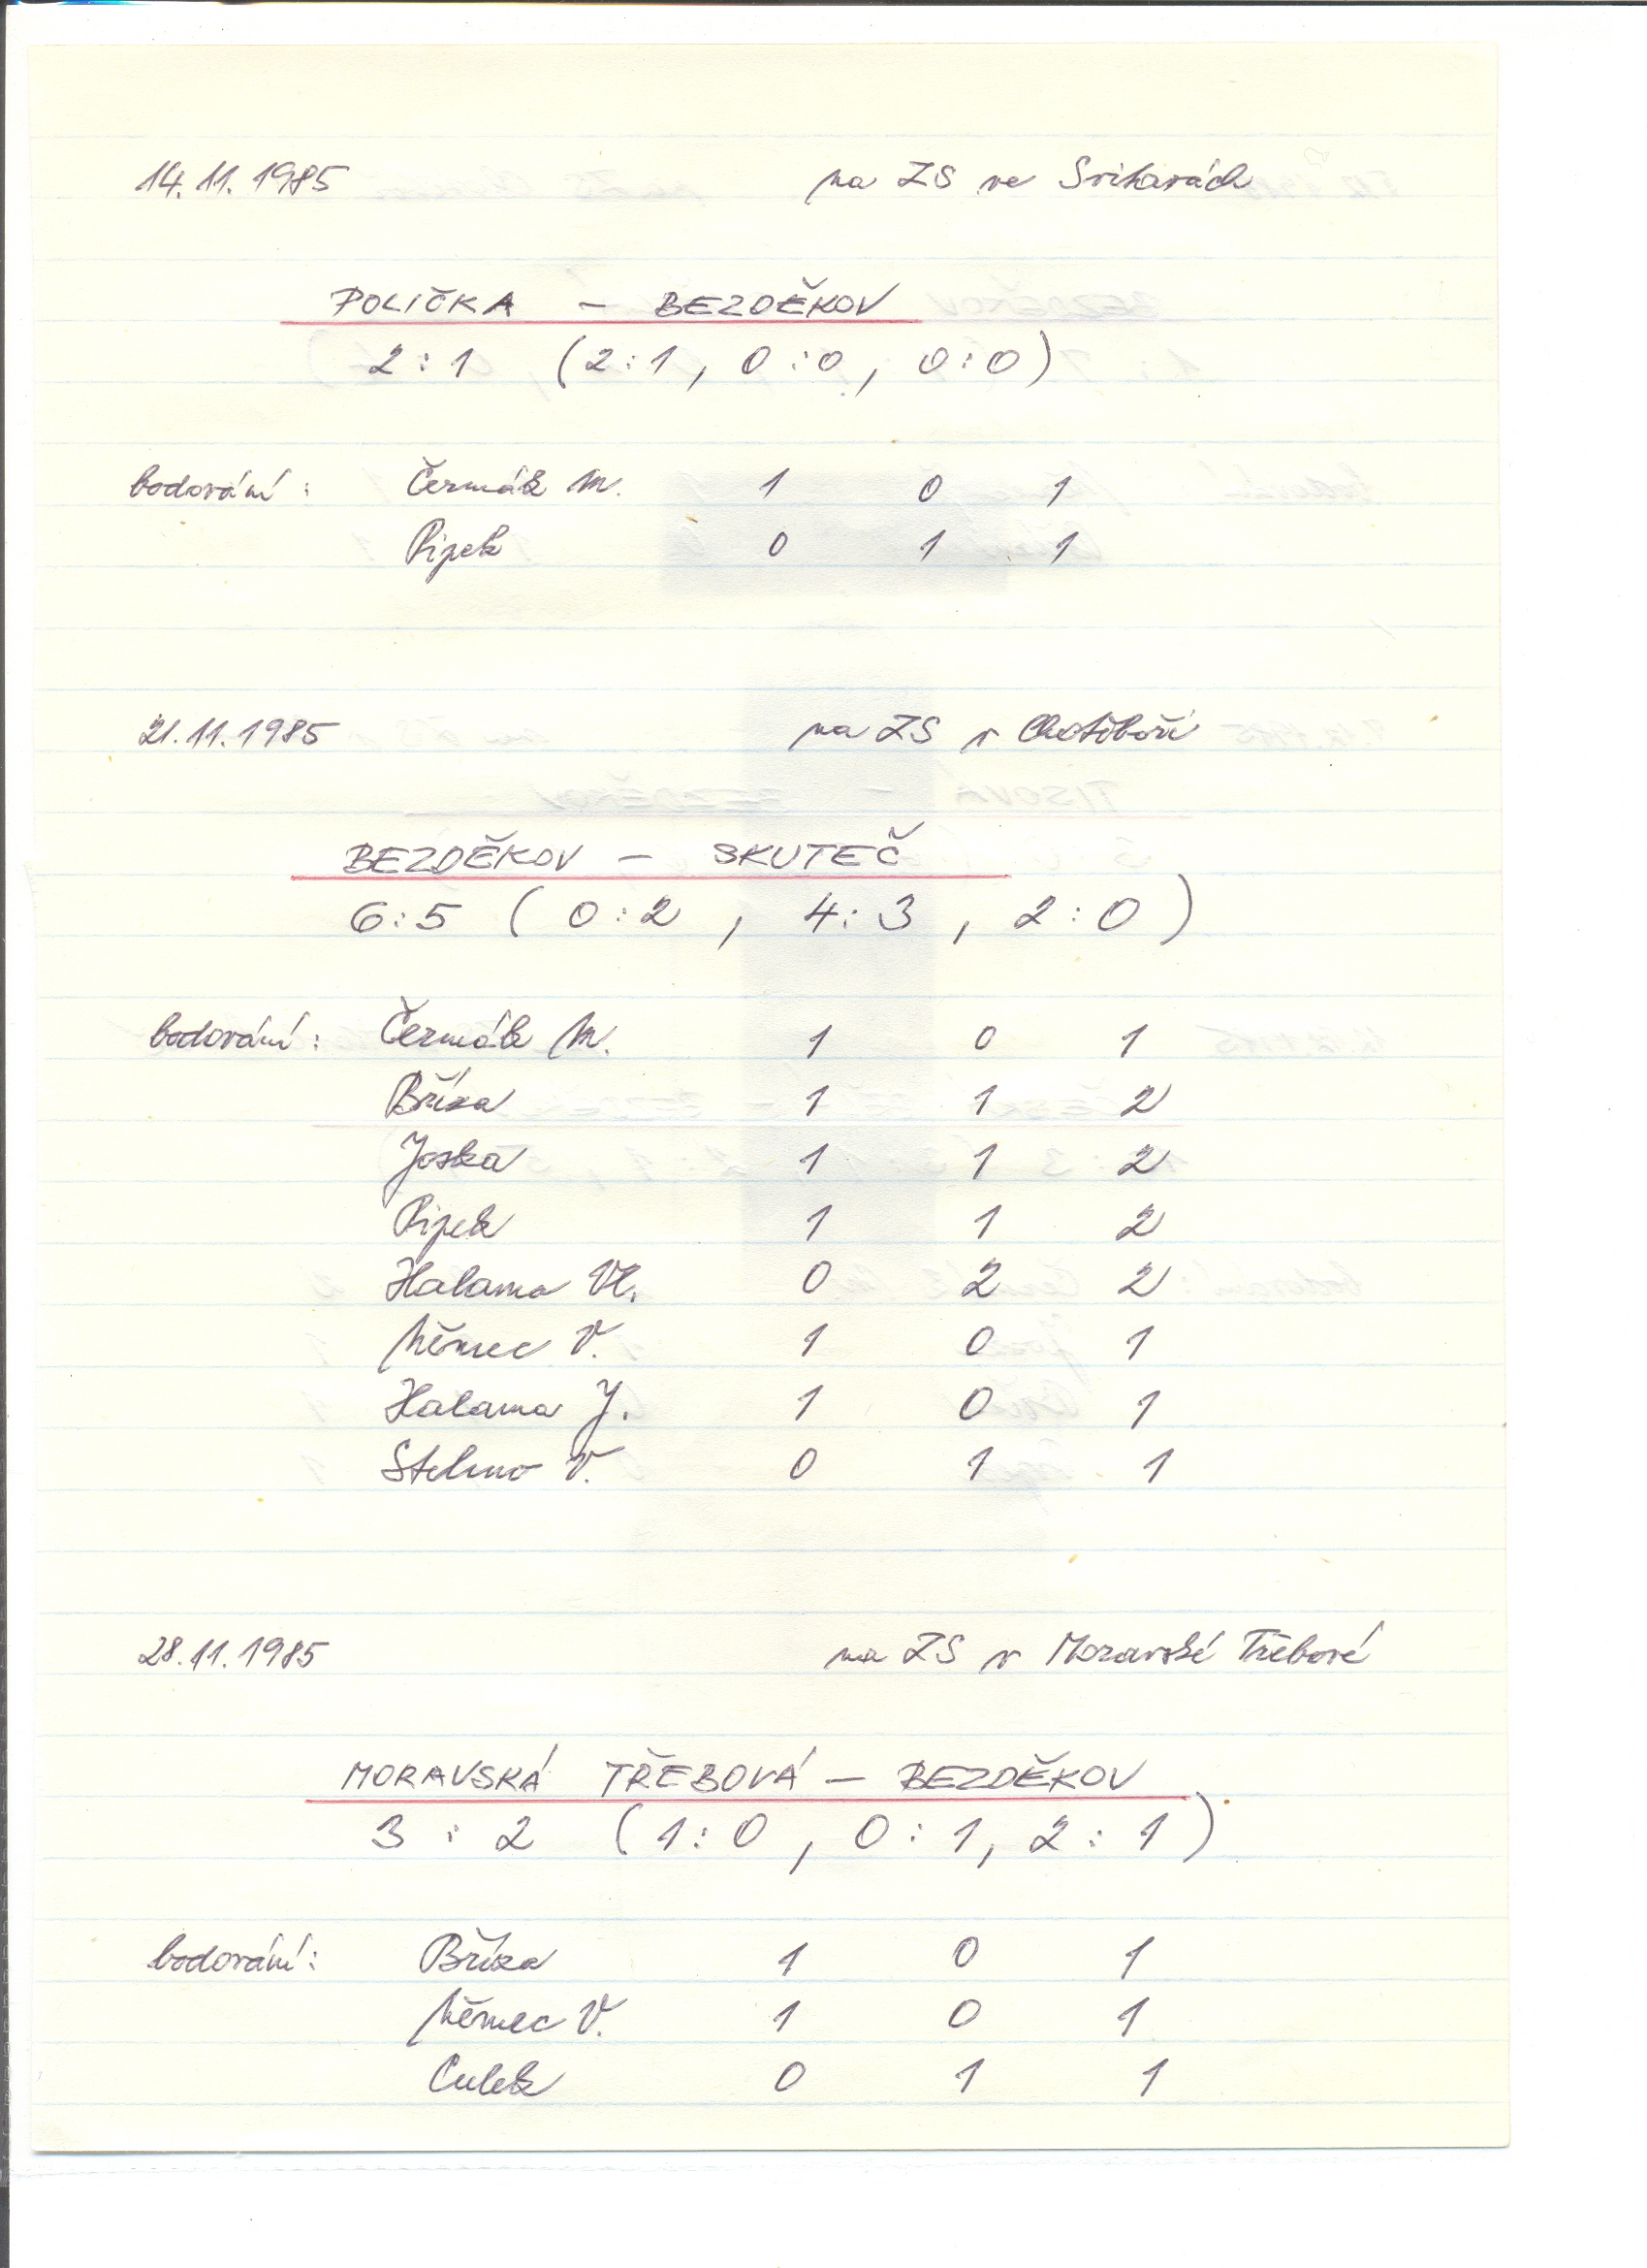 14.11.1985 na ZS ve Svitavách
POLIČKA – BEZDĚKOV
2:1 (2:1, 0:0, 0:0)
bodování: Čermák M. 1 0 1
Pipek 0 1 1
21.11.1985 na ZS v Chotěboři
BEZDĚKOV – SKUTEČ
6:5 (0:2, 4:3, 2:0)
bodování: Čermák M. 1 0 1
Bříza 1 1 2
Joska 1 1 2
Pipek 1 1 2
Halama Vl. 0 2 2
Němec V. 1 0 1
Halama J. 1 0 1
Stehno V. 0 1 1
28.11.1985 na ZS v Moravské Třebové
MORAVSKÁ TŘEBOVÁ – BEZDĚKOV
3:2 (1:0, 0:1, 2:1)
bodování: Bříza 1 0 1
Němec V. 1 0 1
Culek 0 1 1